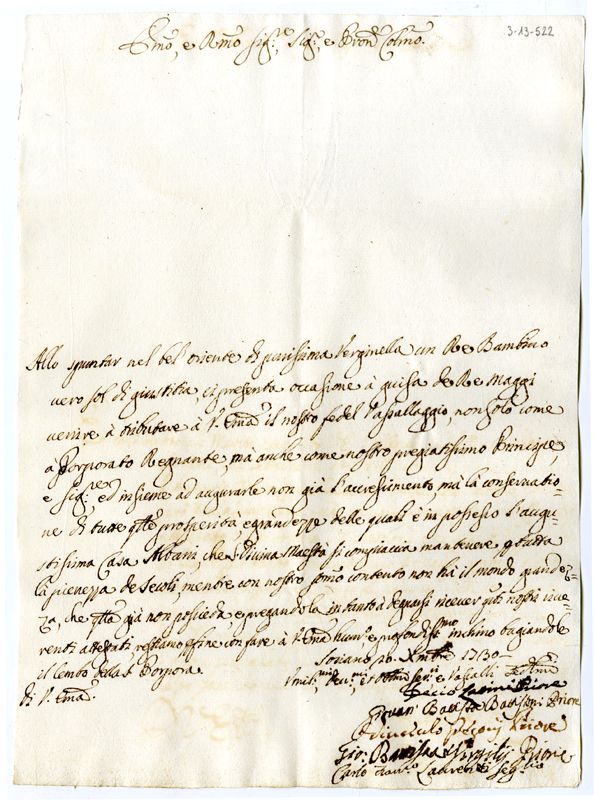 3-13-522
Emo, e Rmo Sig.re, Sig.r e Pron Colmo.
Allo spuntar nel bel' oriente di purissima Verginella un Re Bambino
vero sol di giustitia, ci presenta occasione à guisa de Re Maggi
venire à tributare à V. Emza il nostro fedel Vassallaggio, non solo come
a Porporato Regnante, mà anche come nostro pregiatissimo Principe,
e Sig.re ed insieme ad augurarle non già l'accrescimento, mà la conservatio-
ne di tutte qlle prosperità, e grandezze delle quali è in possesso l'augu-
stissima Casa Albani, che Divina Maestà si compiaccia mantenere p tutta
la pienezza de Secoli, mentre con nostro somo contento non hà il mondo grandez-
za, che qlla già non posieda e pregandola intanto à degnarsi ricever qti nostri rive-
renti attestati restiamo con fare à V. Emza humo e profondissmo inchino bagiandole
il lembo della S. Porpora.
Soriano 20. Xmbre 1730
di V. Emza.
Umilmi, Devmi, et Obmi Serri e Vasalli
Priore
Giovan Battista Battisoni Priore
Priore
Gio: Battista Priore
Carlo Laurenti Segrio